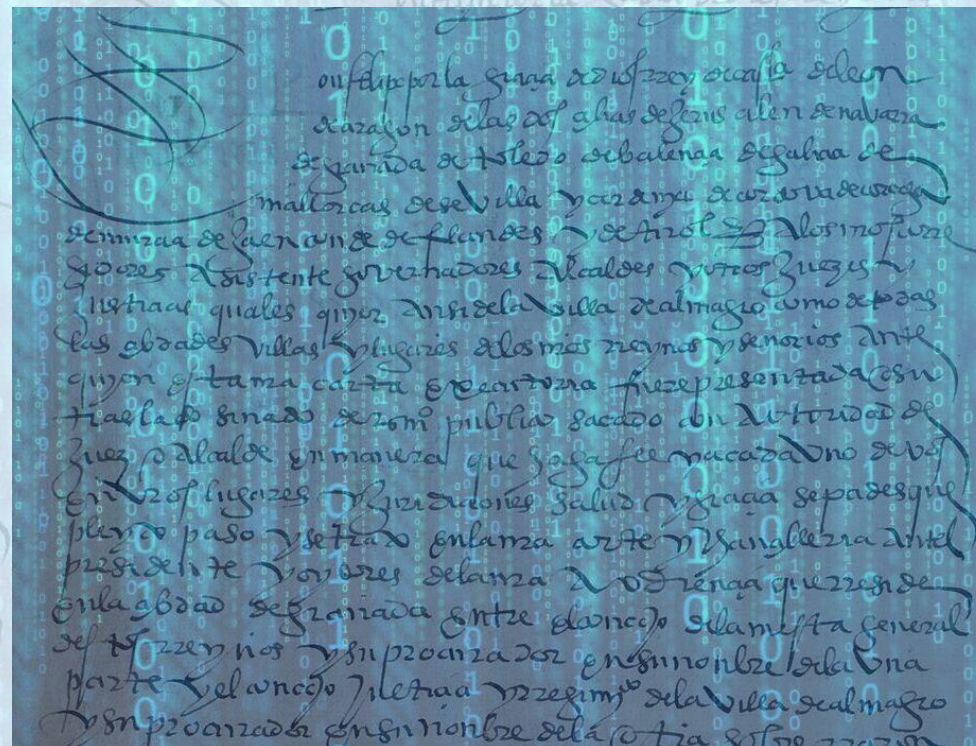 on felipe por la graçia de dios rrey de castilla de leon
de aragon de las dos çiçilias de jerusalen de navarra
de granada de toledo de valençia de galizia de
mallorcas de sevilla de çerdeña de cordova de corçega
de murçia de jaen conde de flandes y de tirol a los mis corre
gidores asistente governadores alcaldes y otros juezes y
justiçias quales quier ansi de la villa de almagro como de todas
las çibdades villas y lugares de los mis rreynos y señorios ante
quien esta mi carta executoria fuere presentada o su
traslado sinado de escrivano publico sacado con autoridad de
juez o alcalde en manera que haga fee y a cada uno de vos
en vros lugares y juridiçiones salud y graçia sepades que
pleyto paso y se trato en la mi corte y chançilleria ante el
presidente y oydores de la mi avdiençia que rreside
en la çibdad de granada entre el conçejo de la mesta general
destos rreynos y su procurador en su nonbre de la una
parte y el conçejo justiçia y rregimiº de la villa de almagro
y su procurador en su nonbre de la otra sobre rrazon